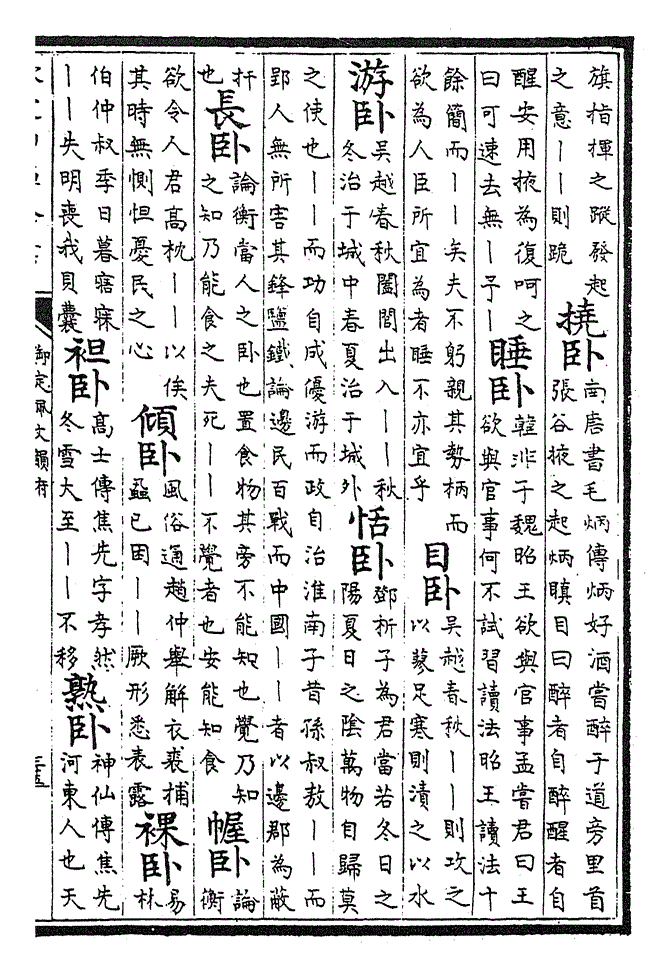 旗指揮之蹤發起
之意――則跪
撓卧
南唐書毛炳傳炳好酒嘗醉于道旁里首
張谷掖之起炳瞋目曰醉者自醉醒者自
醒安用掖為復呵之
曰可速去無―予―
睡卧
韓非子魏昭王欲與官事孟嘗君曰王
欲與官事何不試習讀法昭王讀法十
餘簡而――矣夫不躬親其勢柄而
欲為人臣所宜為者睡不亦宜乎
目卧
吳越春秋――則攻之
以蓼足寒則漬之以水
游卧
吳越春秋闔閭出入――秋
冬治于城中春夏治于城外
恬卧
鄧析子為君當若冬日之
陽夏日之陰萬物自歸莫
之使也――而功自成優游而政自治淮南子昔孫叔敖――而
郢人無所害其鋒鹽鐵論邊民百戰而中國――者以邊郡為蔽
扞
也
長卧
論衡當人之卧也置食物其旁不能知也覺乃知
之知乃能食之夫死――不覺者也安能知食
幄卧
論
衡
欲令人君高枕――以俟
其時無惻怛憂民之心
傾卧
風俗通趙仲舉解衣裘捕
蝨已困――厥形悉表露
裸卧
易
林
伯仲叔季日暮寤寐
――失明喪我貝囊
袒卧
高士傳焦先字孝然
冬雪大至――不移
熟卧
神仙傳焦先
河東人也天
御定佩文韻府